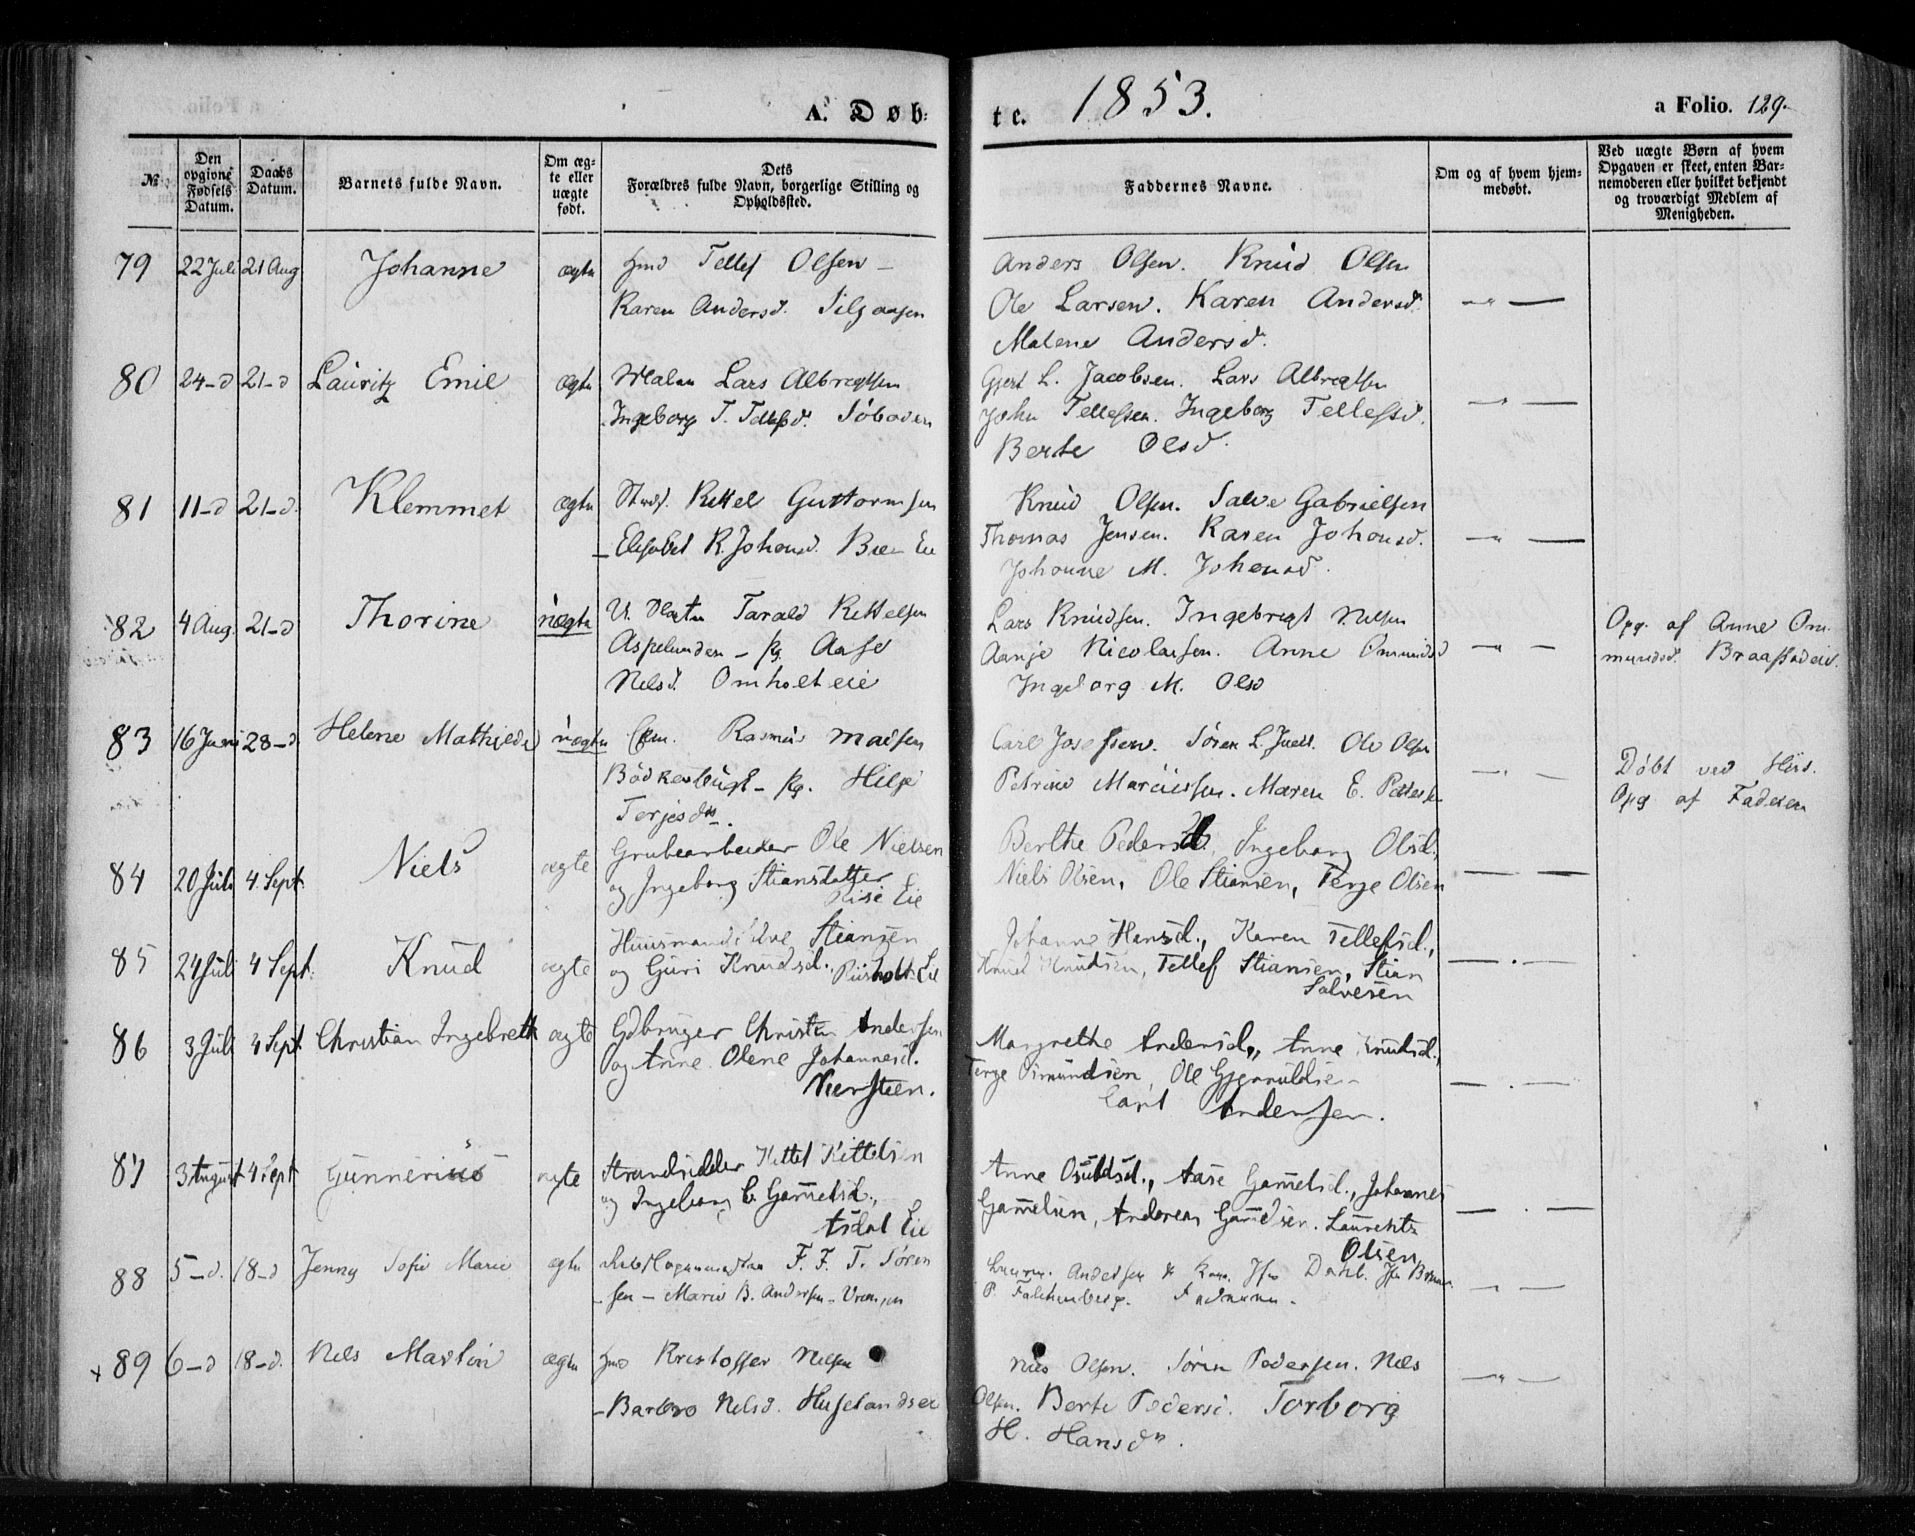 A. Døb-
te. 1853. a Folio. 129.
№ Den opgivne Fødsels Datum. Daabs Datum. Barnets fulde Navn. Om ægte eller uægte født. Dets Forældres fulde Navn, borgerlige Stilling og Opholdssted. Faddernes Navne. Om og af hvem hjemmedøbt. Ved uægte Børn af hvem Opgaven er skeet, enten Barnemoderen eller hvilket bekjendt og troværdigt Medlem af Menigheden.
79 22 Juli 21 Aug Johanne ægte Hmd Tellef Olsen –
Karen Andersd.
Anders Olsen. Knud Olsen
Ole Larsen. Karen Andersd.
Malene Andersd.
80 24-d 21-d Lauritz Emil ægte Lars Albregtsen
Ingeborg T. Tellefsd.
Gjert L. Jacobsen. Lars Albregtsen
John Tellefsen. Ingeborg Tellefsd.
Berte Olsd.
81 11-d 21-d. Klemmet ægte Kittel Guttormsen
– Elisabet K. Johansd. Eie
Knud Olsen. Salve Gabrielsen
Thomas Jensen. Karen Johansd.
Johanne M. Johansd.
82 4 Aug. 21-d Thorine uægte Tarald Kittelsen
Aspelunden – Pg. Aase
Nelsd. Omholt eie
Lars Knudsen. Ingebregt Nilsen
Aanje Nicolaisen. Anne Omundsd
Ingeborg M. Olsd
Opg. af Anne Om-
mundsd.
83 16 Juni 28-d. Helene Mathilde uægte Rasmus Madsen
– Pg. Helge
Terjesdtr.
Carl Josefsen. Søren L. Juell. Ole Olsen
Maren E.
Døbt ved His.
Opg af Faderen
84 20 Juli 4. Sept. Niels ægte Grubearbeider Ole Nielsen
og Ingeborg Stiansdatter
Eie
Berthe Pedersd., Ingeborg Olsd.,
Niels Olsen, Ole Stiansen, Terje Olsen
85 24 Juli 4 Sept. Knud ægte Huusmand Salve Stiansen
og Guri Knudsd., Eie
Johanne Hansd., Karen Tellefsd.,
Knud Knudsen, Tellef Stiansen, Stian
Salvesen
86 3 Juli 4 Sept. Christian Ingebreth ægte Gdbruger Christen Andersen
og Anne Olene Johannesd.
Niersteen.
Margrethe Andersd., Anne Knudsd.,
Terje Osmundsen, Ole
Carl Andersen.
87 3 August 4 Sept Gunnerius ægte Strandsidder Kittel Kittelsen
og Ingeborg Gamelsd.,
Asdal Eie
Anne Osuldsd., Aase Gamelsd., Johannes
Gamelsen, Andreas Gamelsen. Laurents
Olsen
88 5-d. 18-d Jenny Sofie Marie ægte F. F. T. Søren-
sen – Marie B. Andersen –
Andersen Dahl.
P. Falkenberg. Faderen.
89 6-d 18-d. Nels Martin ægte Hmd Kristoffer Nelsen
– Barbro Nelsd.
Nils Olsen. Søren Pedersen. Nels
Olsen. Berte Pedersd. Torborg
H. Hansdtr.